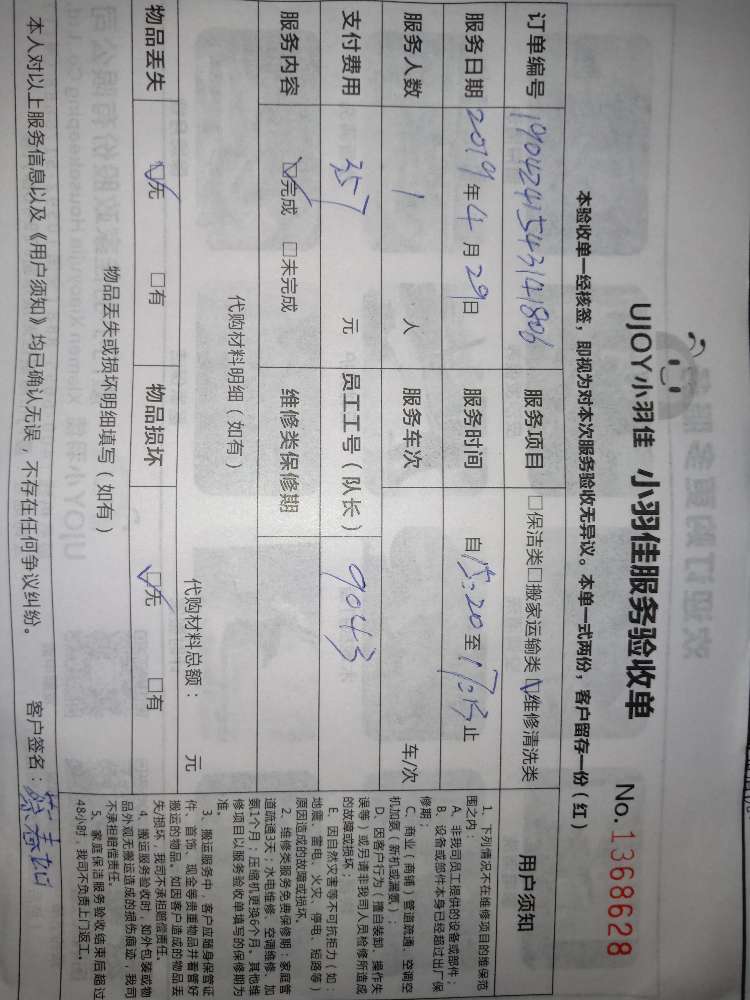 UJOY小羽佳 小羽佳服务验收单
No.1368628
本验收单一经核签，即视为对本次服务验收无异议。本单一式两份，客户留存一份（红）
订单编号 1904241543141806 服务项目 □保洁类□搬家运输类☑维修清洗类
服务日期 2019年4月29日 服务时间 自15:20至17:15止
服务人数 1 人 服务车次 车/次
支付费用 357 元 员工工号（队长） 9043
服务内容 ☑完成 □未完成 维修类保修期
代购材料明细（如有）
代购材料总额： 元
物品丢失 ☑无 □有 物品损坏 ☑无 □有
物品丢失或损坏明细填写（如有）
本人对以上服务信息以及《用户须知》均已确认无误，不存在任何争议纠纷。 客户签名：
用户须知
1、下列情况不在维修项目的维保范
围之内：
A、非我司员工提供的设备或部件；
B、设备或部件本身已经超过出厂保
修期；
C、商业（商铺）管道疏通、空调空
机加氨（新机或漏氨）；
D、因客户行为（擅自装卸、操作失
误等）或另请非我司人员检修所造成
的故障或损坏；
E、因自然灾害等不可抗拒力（如：
地震、雷电、火灾、停电、短路等）
原因造成的故障或损坏。
2、维修类服务免费保修期：家庭管
道疏通3天；水电维修、空调维修、加
氨1个月；压缩机更换6个月，其他维
修项目以服务验收单填写的保修期为
准。
3、搬运服务中，客户应随身保管证
件、首饰、现金等贵重物品并看管好
搬运的物品。如因客户造成的物品丢
失/损坏，我司不承担赔偿责任。
4、搬运服务验收时，如外包装或物
品外观无搬运造成的损伤痕迹，我司
不承担赔偿责任。
5、家庭保洁服务验收结束后超过
48小时，我司不负责上门返工。